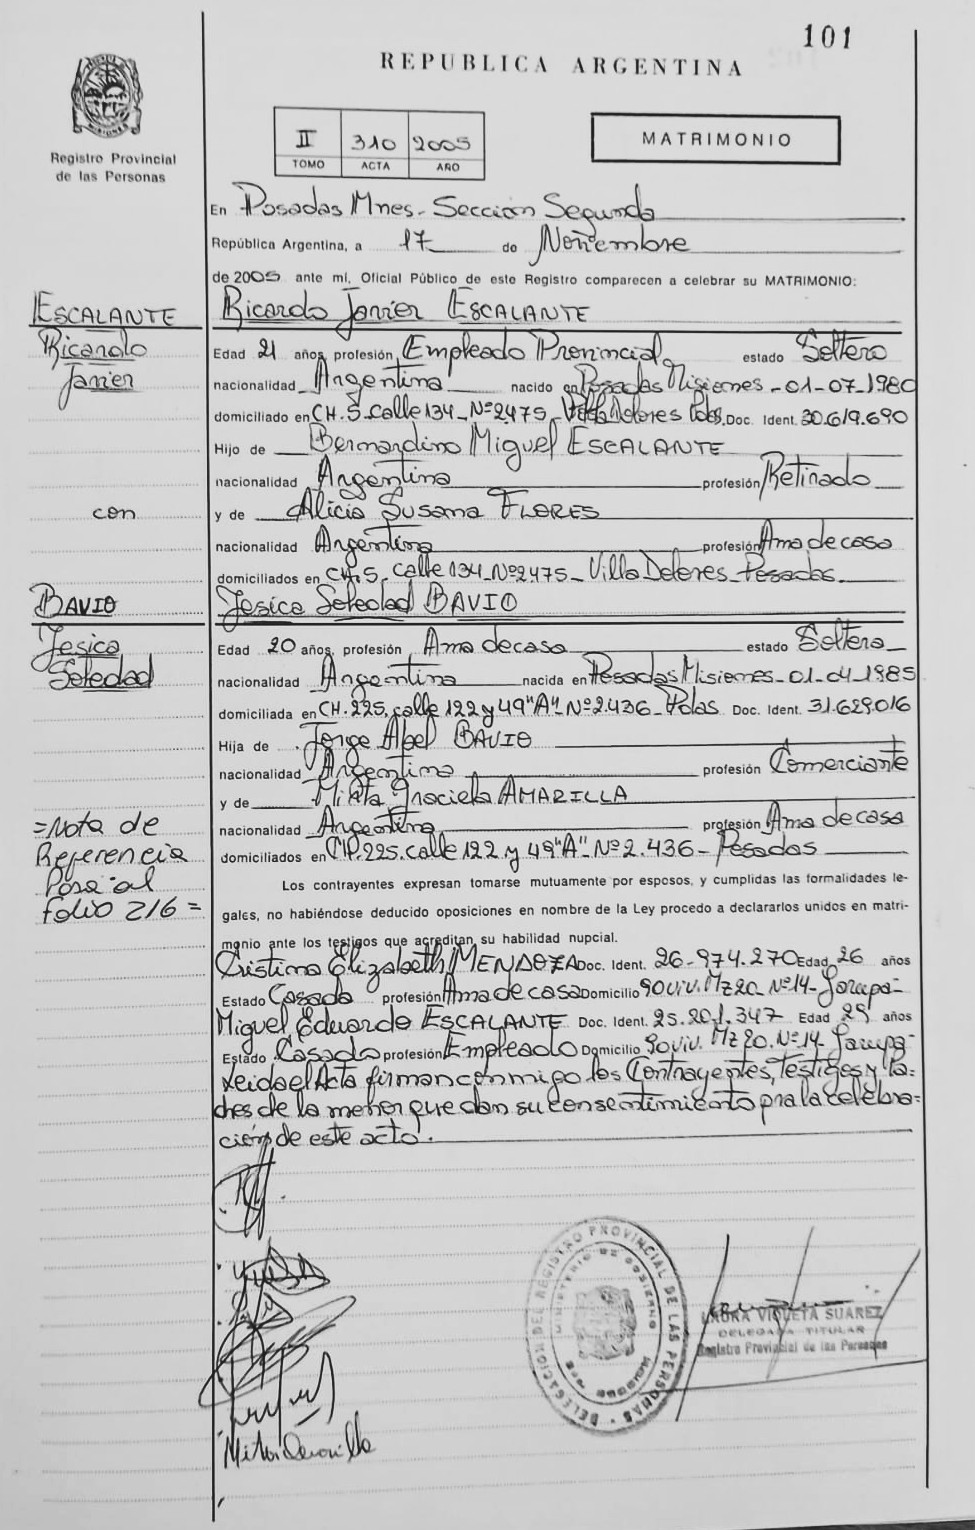 101
REPUBLICA ARGENTINA
Registro Provincial
de las Personas
II 310 2005
TOMO ACTA AÑO
MATRIMONIO
En Posadas Mnes. Sección Segunda
República Argentina, a 17 de Noviembre
de 2005 ante mi, Oficial Público de este Registro comparecen a celebrar su MATRIMONIO:
ESCALANTE
Ricardo
Javier
con
BAVIO
Jesica
Soledad
=Nota de
Referencia
Pasa al
folio 216=
Ricardo Javier ESCALANTE
Edad 21 años, profesión Empleado Provincial estado Soltero
nacionalidad Argentina nacido en Posadas Misiones - 01-07-1980
domiciliado en CH. 5 - calle 134 - Nº 2475 - Villa Dolores Pdas. Doc. Ident. 30.619.690
Hijo de Bernardino Miguel ESCALANTE
nacionalidad Argentina profesión Retirado
y de Alicia Susana FLORES
nacionalidad Argentina profesión Ama de casa
domiciliados en CH. 5. calle 134 - Nº 2475 - Villa Dolores - Posadas
Jesica Soledad BAVIO
Edad 20 años, profesión Ama de casa estado Soltera
nacionalidad Argentina nacida en Posadas Misiones - 01-04-1985
domiciliada en CH. 225. calle 122 y 49 "A" - Nº 2.436 - Pdas Doc. Ident. 31.629.016
Hija de Jorge Abel BAVIO
nacionalidad Argentina profesión Comerciante
y de Mirta Graciela AMARILLA
nacionalidad Argentina profesión Ama de casa
domiciliados en CH. 225. calle 122 y 49 "A" - Nº 2.436 - Posadas
Los contrayentes expresan tomarse mutuamente por esposos, y cumplidas las formalidades le-
gales, no habiéndose deducido oposiciones en nombre de la Ley procedo a declararlos unidos en matri-
monio ante los testigos que acreditan su habilidad nupcial.
Cristina Elizabeth MENDOZA Doc. Ident. 26.974.270 Edad 26 años
Estado Casada profesión Ama de casa Domicilio 90 viv. Mz 20 Nº 14 - Garupa -
Miguel Eduardo ESCALANTE Doc. Ident. 25.201.347 Edad 29 años
Estado Casado profesión Empleado Domicilio 90 viv. Mz 20. Nº 14 - Garupa -
Leida el Acta firman conmigo los Contrayentes, Testigos y Pa=
dres de la menor que dan su consentimiento pra la celebra=
ción de este acto.
DELEGACION DEL REGISTRO PROVINCIAL DE LAS PERSONAS
MINISTERIO DE GOBIERNO
LAURA VIOLETA SUAREZ
DELEGADA TITULAR
Registro Provincial de las Personas